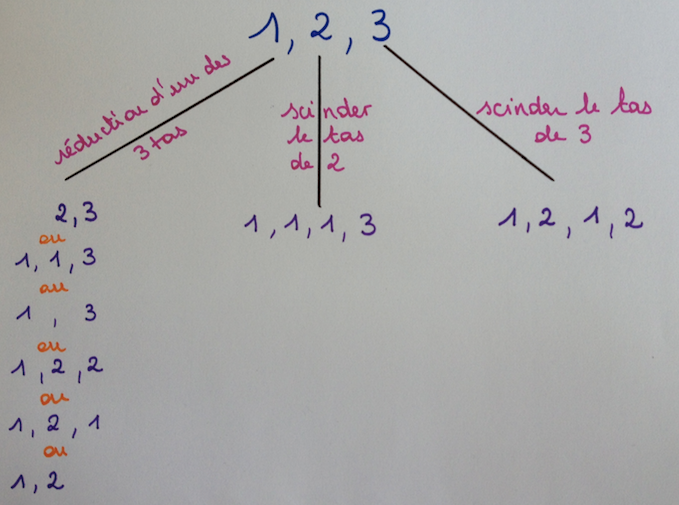 1, 2, 3
réduction d'un des
3 tas
scinder
le tas
de 2
scinder le tas
de 3
2, 3
ou
1, 1, 3
ou
1, 3
ou
1, 2, 2
ou
1, 2, 1
ou
1, 2
1, 1, 1, 3
1, 2, 1, 2